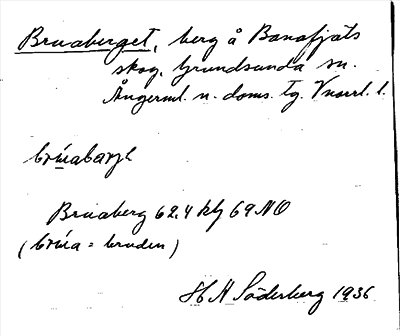 Bruaberget, berg å Banafjäls
skog, Grundsunda sn.
Ångerml. n. doms. tg. Vnorrl. l.
brúabarjə
Bruaberg 62.4 klj 69 NO
(brúa = bruden)
H N Söderberg 1936